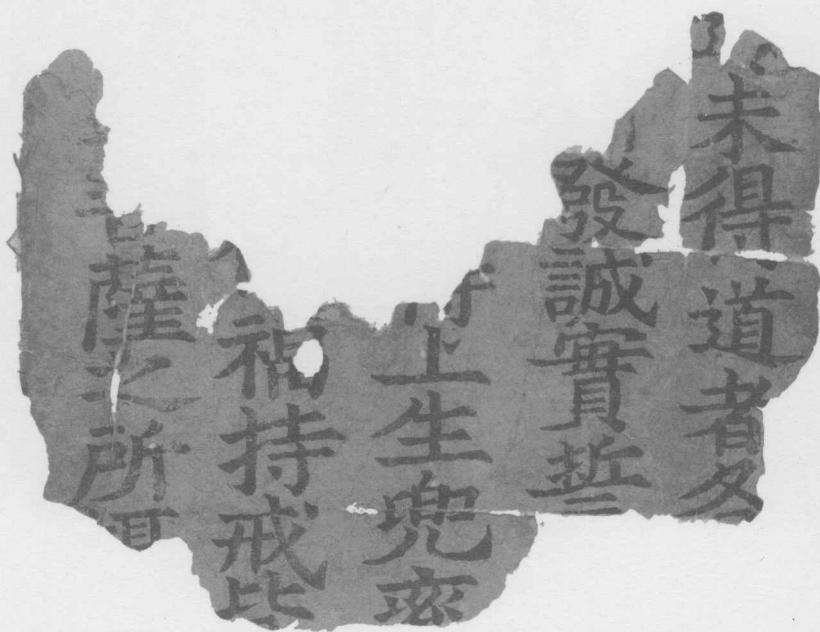 未得道者各
發誠實誓
上生兜率
福持戒皆
薩之所